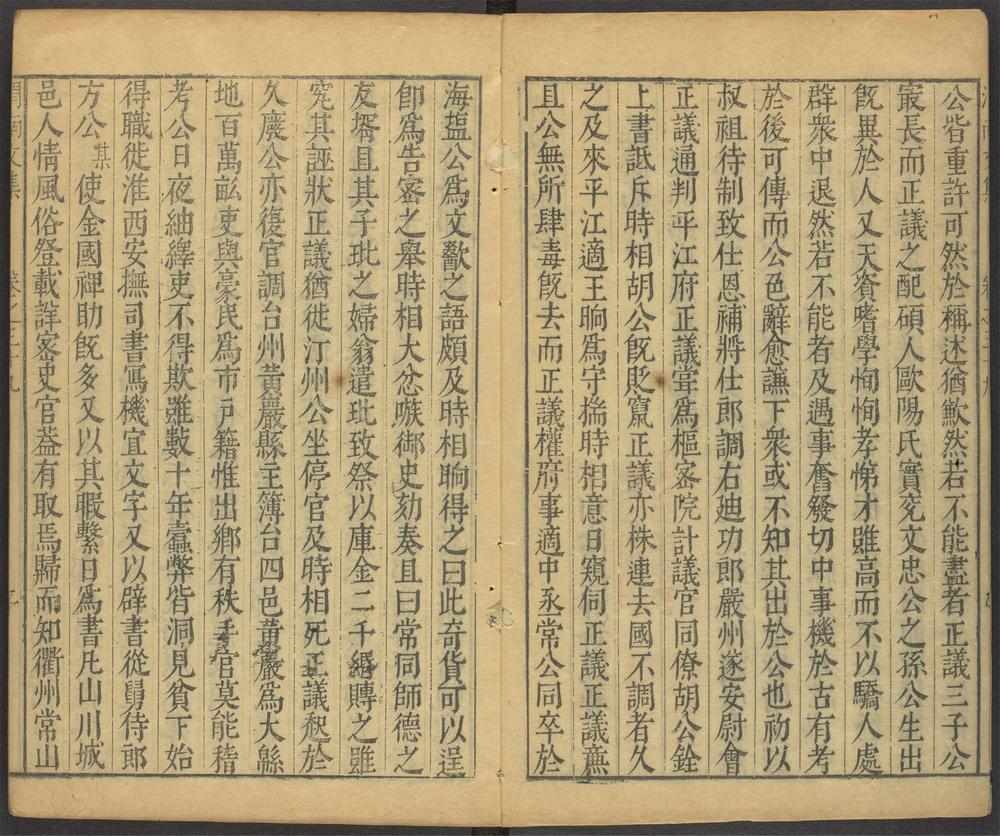 公皆重許可然於稱述猶歉然若不能盡者正議三子公
㝡長而正議之配碩人歐陽氏實兖文忠公之孫公生出
旣異於人又天資嗜學恂恂孝悌才雖高而不以驕人處
群衆中退然若不能者及遇事奮發切中事機於古有考
於後可傳而公色辭愈謙下衆或不知其出於公也初以
叔祖待制致仕恩補將仕郎調右廸功郎嚴州遂安尉會
正議通判平江府正議甞爲樞密院計議官同僚胡公銓
上書詆斥時相胡公旣貶竄正議亦株連去國不調者久
之及來平江適王晌爲守揣時相意日窺伺正議正議廉
且公無所肆毒旣去而正議權府事適中丞常公同卒於
海塩公爲文歠之語頗及時相晌得之曰此奇貨可以逞
卽爲告密之舉時相大忿嗾御史劾奏且曰常同師德之
友壻且其子玭之婦翁遣玭致祭以庫金二千緡賻之雖
究其誣狀正議猶徙汀州公坐停官及時相死正議起於
久廢公亦復官調台州黄巖縣主簿台四邑黄巖爲大縣
地百萬畝吏與豪民爲市戶籍惟出鄉有秩手官莫能稽
考公日夜紬繹吏不得欺雖數十年蠹弊皆洞見貧下始
得職徙淮西安撫司書寫機宜文字又以辟書從舅侍郎
方公某使金國禆助旣多又以其暇繫日爲書凡山川城
邑人情風俗登載詳密史官葢有取焉歸而知衢州常山
渭南文集 卷之三十九